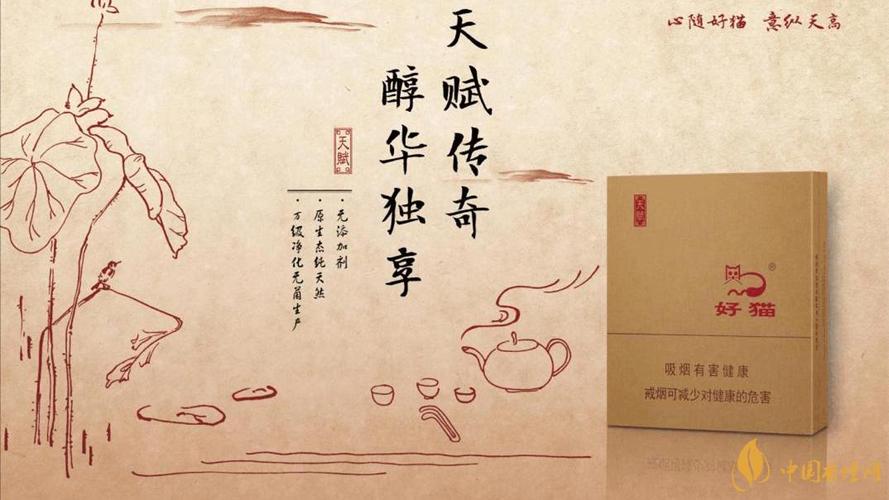 心随好猫 意纵天高
天赋传奇
醇华独享
天赋
无添加剂
原生态纯天然
万级净化无菌生产
天赋
®
好猫
吸烟有害健康
戒烟可减少对健康的危害